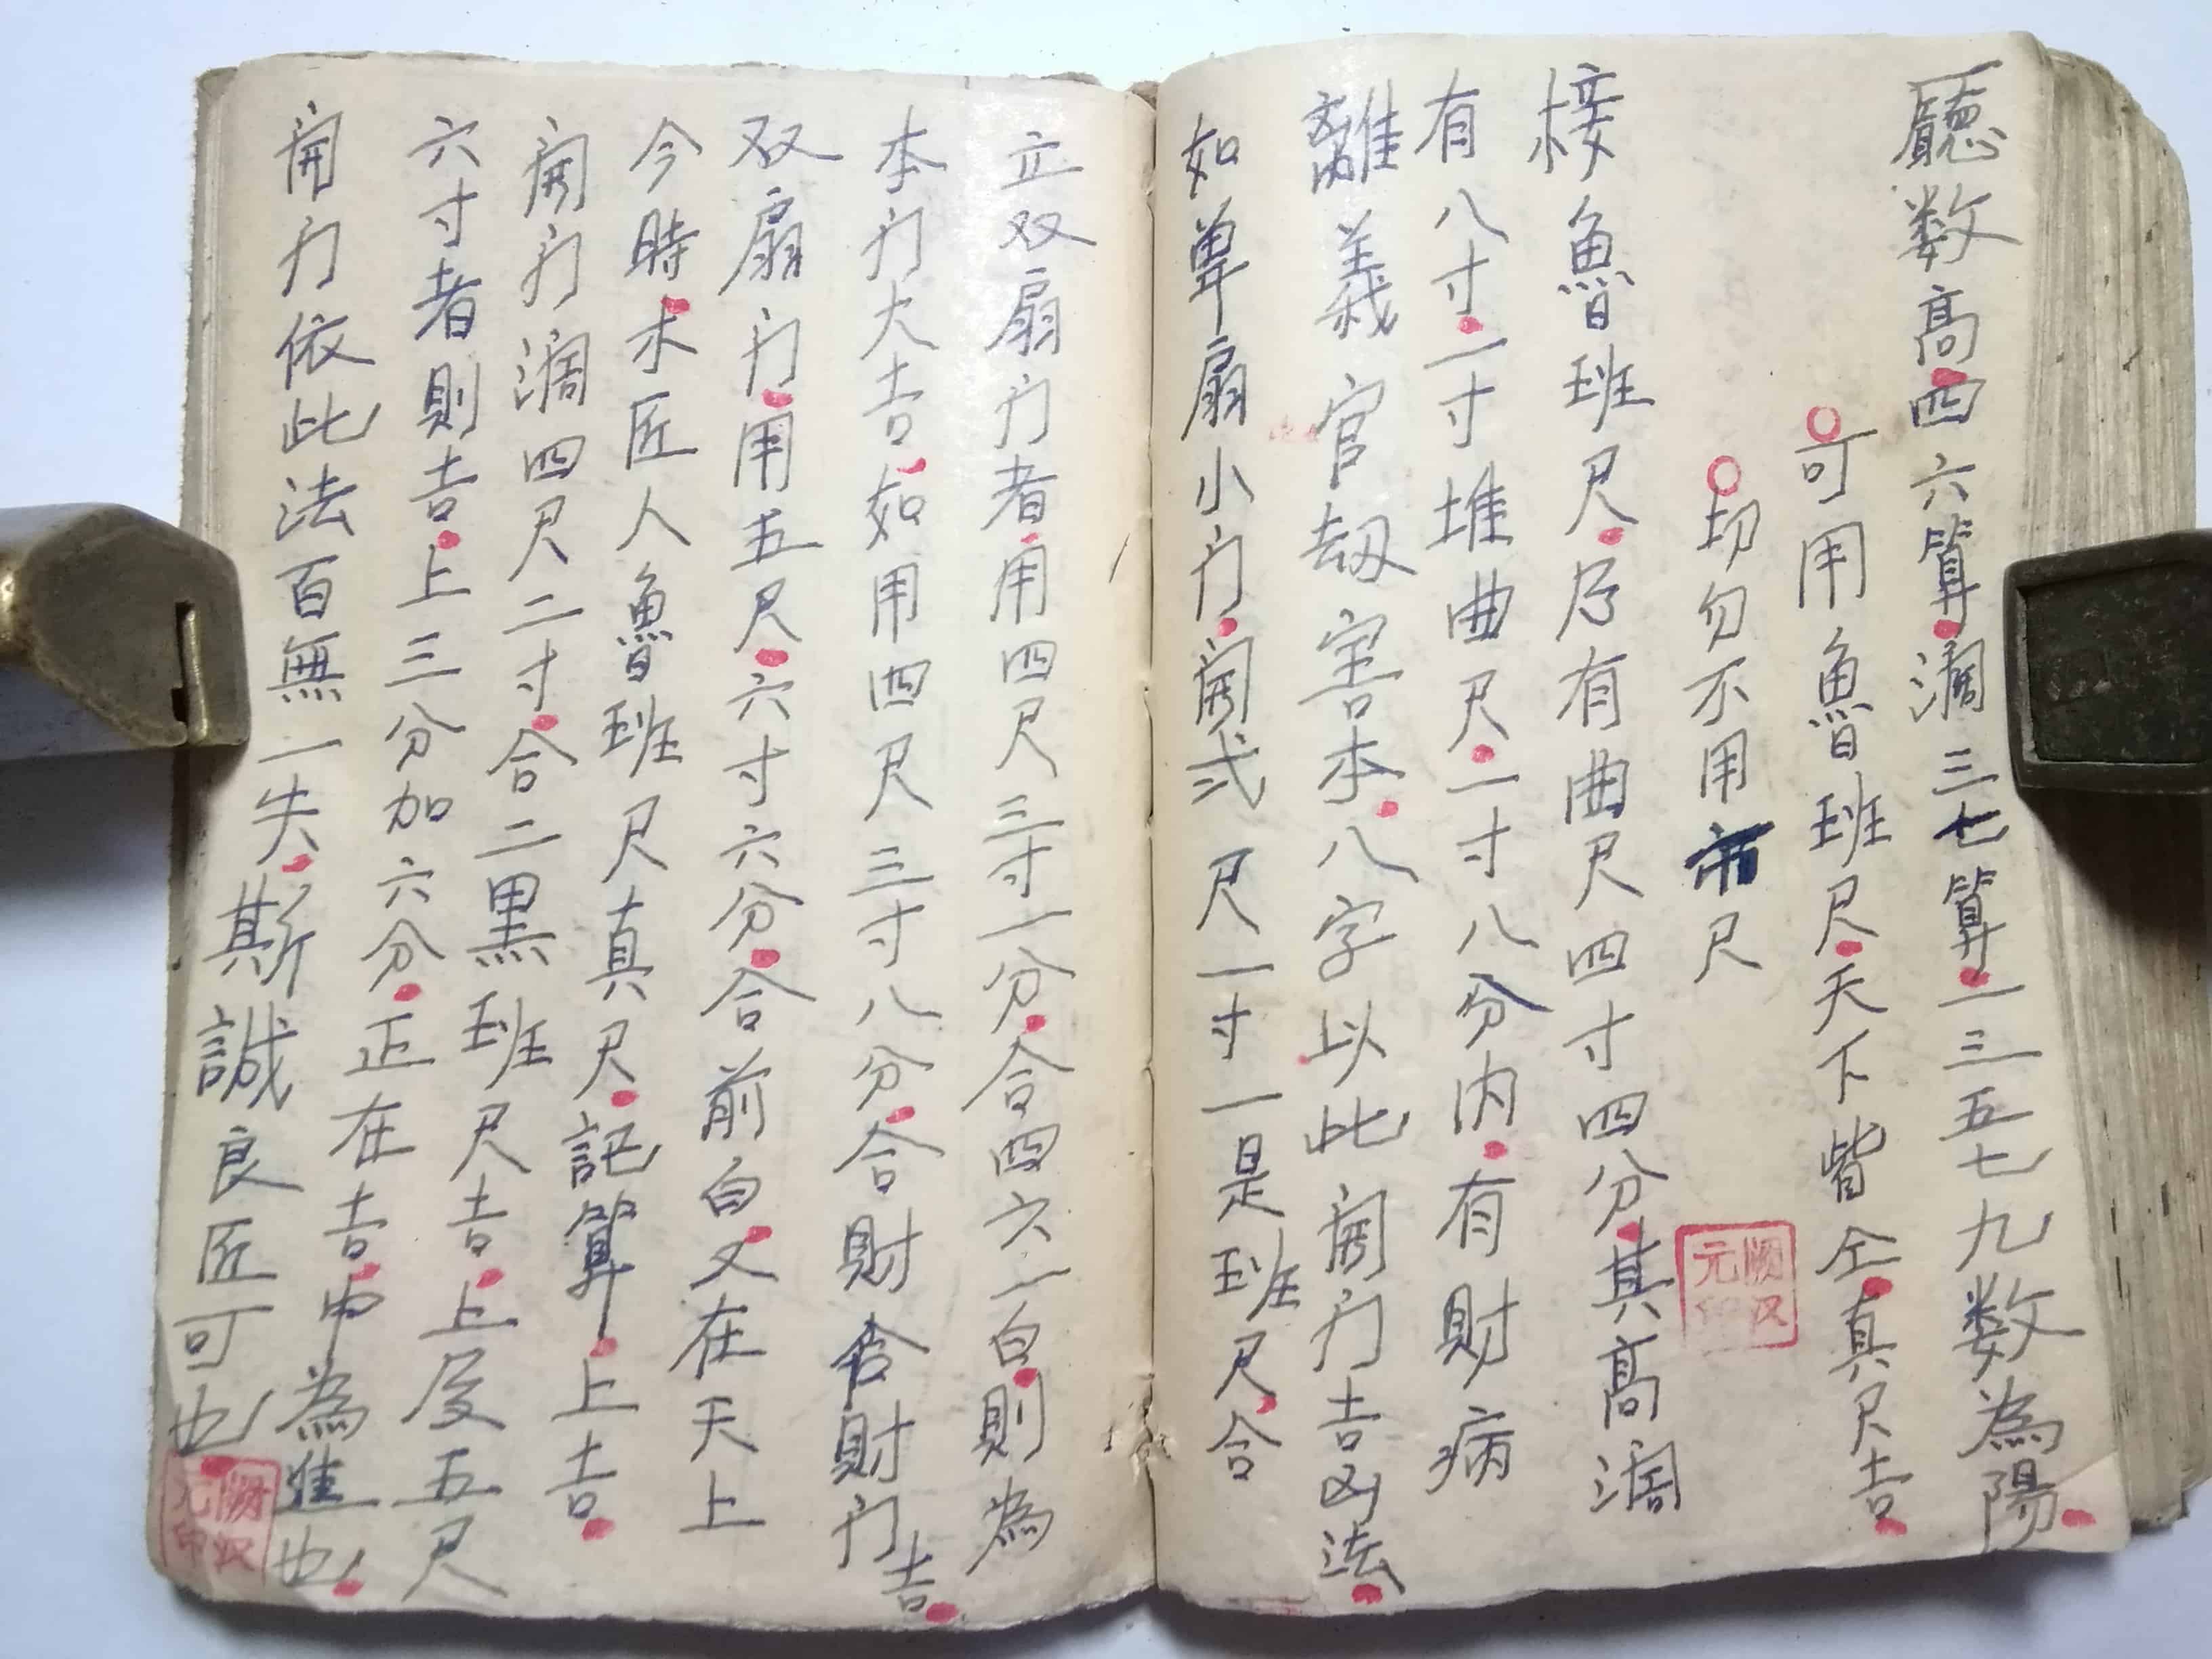 廳数高四六算濶三七算一三五七九数為陽
可用魯班尺天下皆仝真尺吉
切勿不用市尺
顺汉元印
接魯班尺乃有曲尺四寸四分其高濶
有八寸一寸堆曲尺一寸八分内有財病
離義官刼害本八字以此開门吉凶法
如单扇小门開弍尺一寸一是班尺合
立双扇门者用四尺三寸一分合四六一白則為
本门大吉如用四尺三寸八分合財舍財门吉
双扇门用五尺六寸六分合前白又在天上
今時木匠人魯班尺真尺記算上吉
開门濶四尺二寸合二黒班尺吉上度五尺
六寸者則吉上三分加六分正在吉中為進也
開门依此法百無一失斯誠良匠可也
顺汉元印